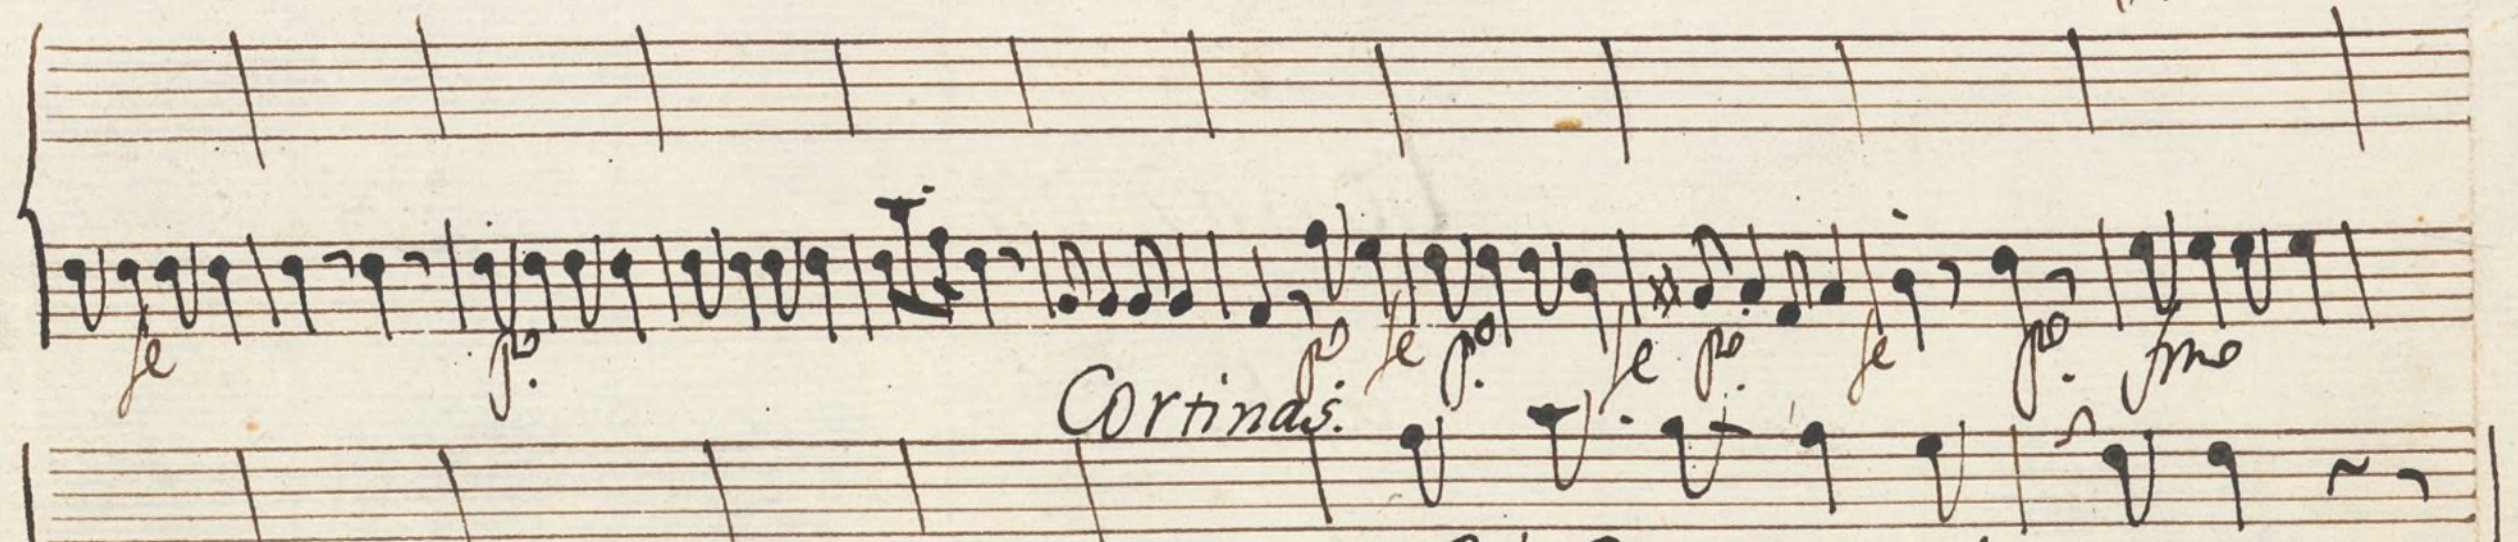 fe p. p fe p. fe po. fe po. fmo
Cortinas.